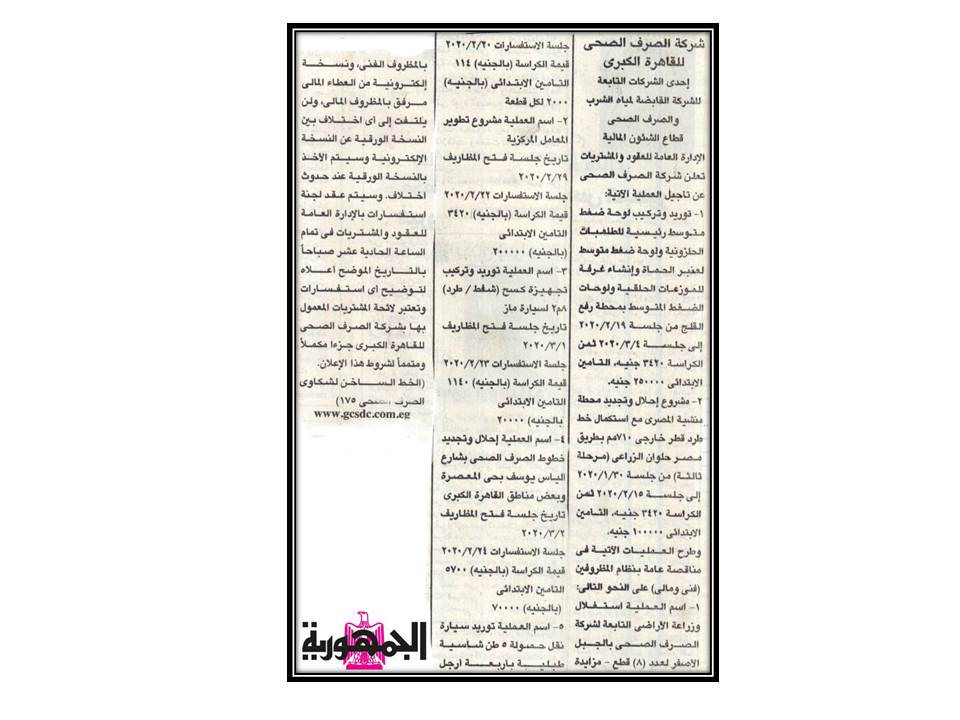 شركة الصرف الصحى
للقاهرة الكبرى
إحدى الشركات التابعة
للشركة القابضة لمياه الشرب
والصرف الصحى
قطاع الشئون المالية
الإدارة العامة للعقود والمشتريات
تعلن شركة الصرف الصحى
عن تاجيل العملية الآتية:
١- توريد وتركيب لوحة ضغط
متوسط رئيسية للطلمبات
الحلزونية ولوحة ضغط متوسط
لعنبر الحماة وإنشاء غرفة
للموزعات الحلقية ولوحات
الضغط المتوسط بمحطة رفع
القلج من جلسة ٢٠٢٠/٢/١٩
إلى جلسة ٢٠٢٠/٣/٤ ثمن
الكراسة ٣٤٢٠ جنيه، التامين
الابتدائى ٢٥٠٠٠٠ جنيه.
٢- مشروع إحلال وتجديد محطة
منشية المصرى مع استكمال خط
طرد قطر خارجى ٧١٠مم بطريق
مصر حلوان الزراعى (مرحلة
ثالثة) من جلسة ٢٠٢٠/١/٣٠
إلى جلسة ٢٠٢٠/٢/١٥ ثمن
الكراسة ٣٤٢٠ جنيه، التامين
الابتدائى ١٠٠٠٠٠ جنيه.
وطرح العمليات الآتية فى
مناقصة عامة بنظام المظروفين
(فنى ومالى) على النحو التالى:
١- اسم العملية استغلال
وزراعة الأراضى التابعة لشركة
الصرف الصحى بالجبل
الأصفر لعدد (٨) قطع - مزايدة
جلسة الاستفسارات ٢٠٢٠/٢/٢٠
قيمة الكراسة (بالجنيه) ١١٤
التامين الابتدائى (بالجنيه)
٢٠٠٠ لكل قطعة
٢- اسم العملية مشروع تطوير
المعامل المركزية
تاريخ جلسة فتح المظاريف
٢٠٢٠/٢/٢٩
جلسة الاستفسارات ٢٠٢٠/٢/٢٢
قيمة الكراسة (بالجنيه) ٣٤٢٠
التامين الابتدائى
(بالجنيه) ٢٠٠٠٠٠
٣- اسم العملية توريد وتركيب
تجهيزة كسح (شفط / طرد)
٨م٢ لسيارة ماز
تاريخ جلسة فتح المظاريف
٢٠٢٠/٣/١
جلسة الاستفسارات ٢٠٢٠/٢/٢٣
قيمة الكراسة (بالجنيه) ١١٤٠
التامين الابتدائى
(بالجنيه) ٢٠٠٠٠
٤- اسم العملية إحلال وتجديد
خطوط الصرف الصحى بشارع
الياس يوسف بحى المعصرة
وبعض مناطق القاهرة الكبرى
تاريخ جلسة فتح المظاريف
٢٠٢٠/٣/٢
جلسة الاستفسارات ٢٠٢٠/٢/٢٤
قيمة الكراسة (بالجنيه) ٥٧٠٠
التامين الابتدائى
(بالجنيه) ٧٠٠٠٠
٥- اسم العملية توريد سيارة
نقل حمولة ٥ طن شاسية
طبلية باربعة ارجل
بالمظروف الفنى، ونسخة
إلكترونية من العطاء المالى
مرفق بالمظروف المالى، ولن
يلتفت إلى أى اختلاف بين
النسخة الورقية عن النسخة
الإلكترونية وسيتم الأخذ
بالنسخة الورقية عند حدوث
اختلاف. وسيتم عقد لجنة
استفسارات بالإدارة العامة
للعقود والمشتريات فى تمام
الساعة الحادية عشر صباحاً
بالتاريخ الموضح أعلاه
لتوضيح أى استفسارات
وتعتبر لائحة المشتريات المعمول
بها بشركة الصرف الصحى
للقاهرة الكبرى جزءا مكملاً
ومتمماً لشروط هذا الإعلان.
(الخط الساخن لشكاوى
الصرف الصحى ١٧٥)
www.gcsdc.com.eg
الجمهورية